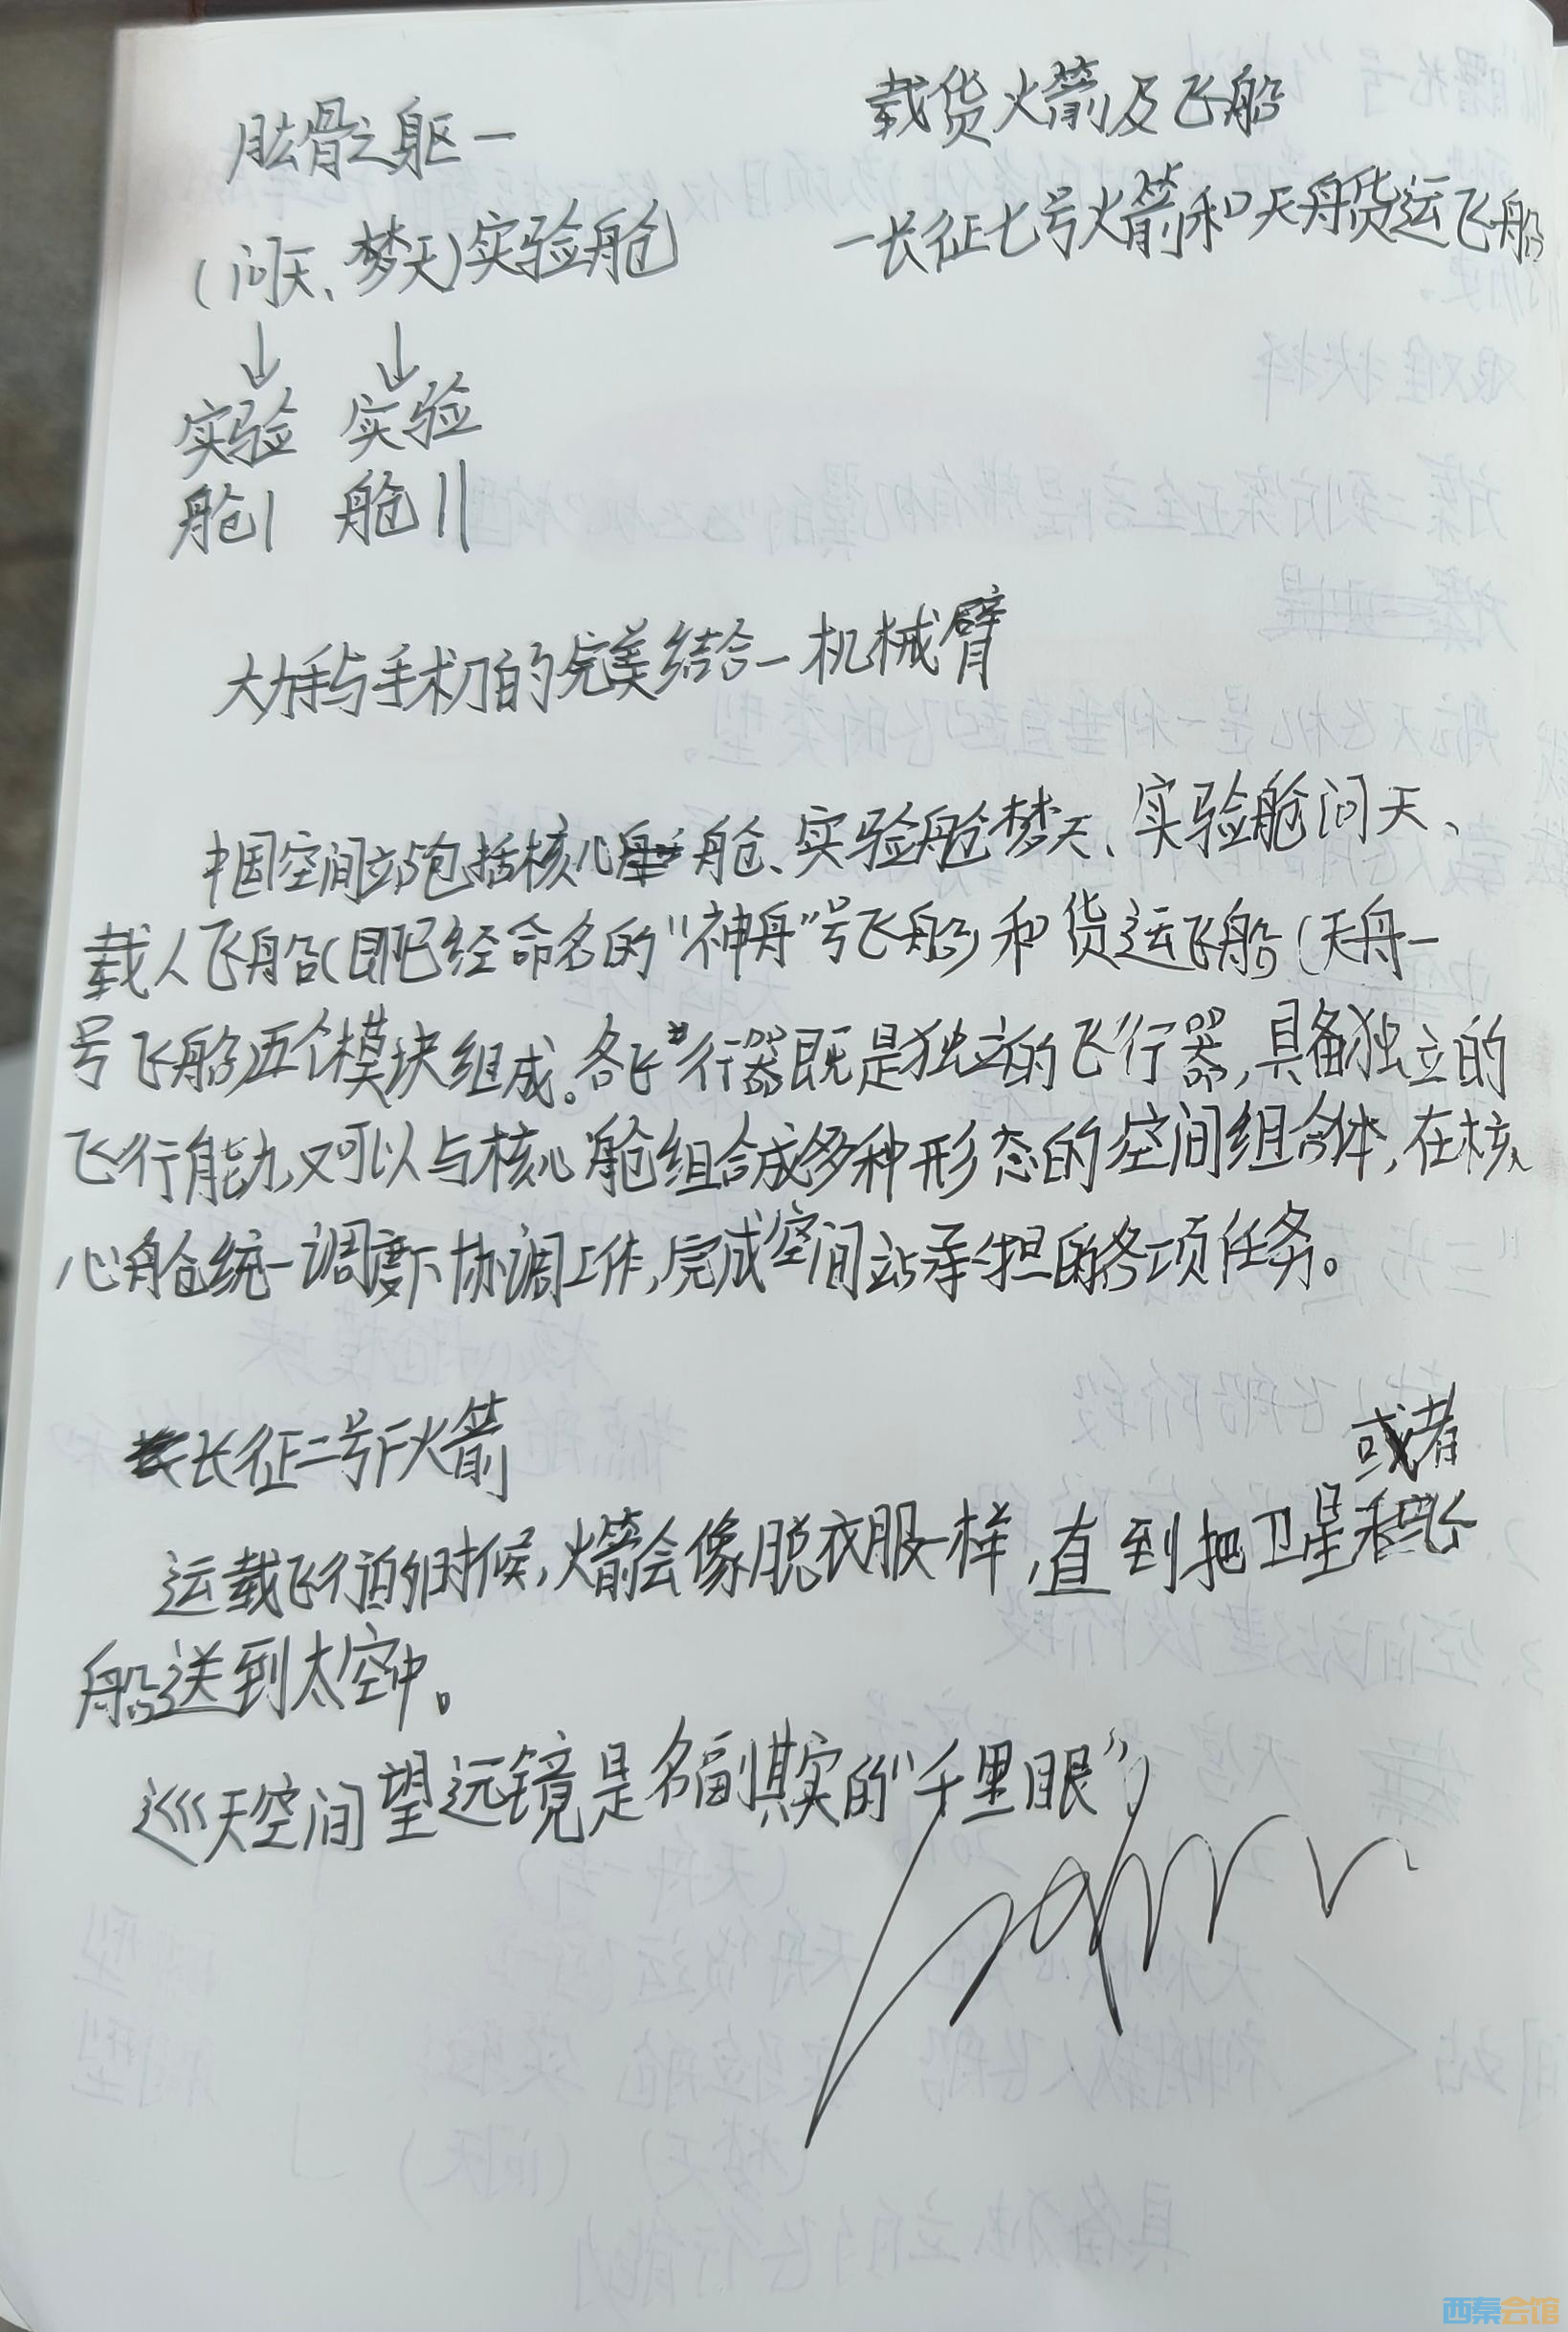 肱骨之躯一
(问天、梦天)实验舱
↓ ↓
实验 实验
舱I 舱II
载货火箭及飞船
一长征七号火箭和天舟货运飞船
大力手与手术刀的完美结合一机械臂
中国空间站包括核心舱、实验舱梦天、实验舱问天、
载人飞船(即已经命名的“神舟”号飞船)和货运飞船(天舟一
号飞船)五个模块组成。各飞行器既是独立的飞行器,具备独立的
飞行能力,又可以与核心舱组合成多种形态的空间组合体,在核
心舱统一调度下协调工作,完成空间站承担的各项任务。
长征二号F火箭
或者
运载飞行的时候,火箭会像脱衣服一样,直到把卫星飞
船送到太空中。
巡天空间望远镜是名副其实的“千里眼”
西秦会馆